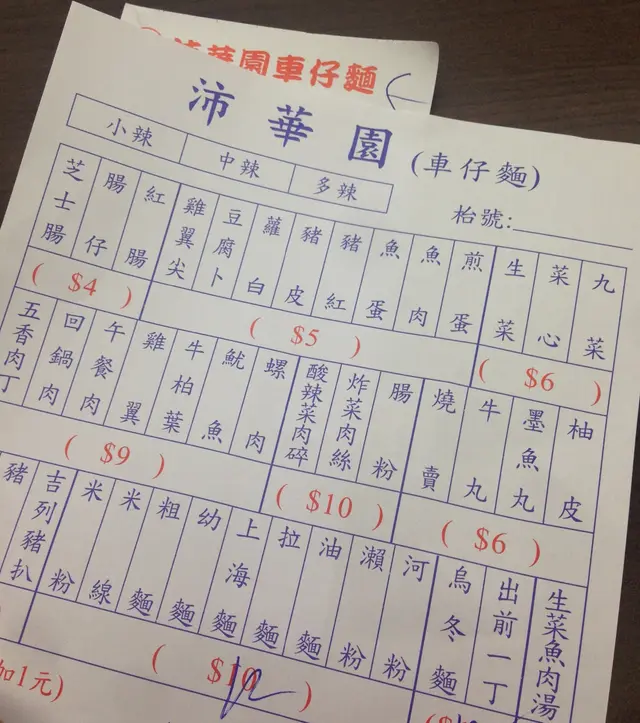 華園車仔麵
沛華園(車仔麵)
小辣
中辣
多辣
枱號:
芝士腸
腸仔
紅腸
雞翼尖
豆腐卜
蘿白
豬皮
豬紅
魚蛋
魚肉
煎蛋
生菜
菜心
九菜
( $4 )
( $5 )
( $6 )
五香肉丁
回鍋肉
午餐肉
雞翼
牛柏葉
魷魚
螺肉
酸辣菜肉碎
炸菜肉絲
腸粉
燒賣
牛丸
墨魚丸
柚皮
( $9 )
( $10 )
( $6 )
豬
吉列豬扒
米粉
米線
粗麵
幼麵
上海麵
拉麵
油麵
瀨粉
河粉
烏冬麵
出前一丁
生菜魚肉湯
( $10 )
12
加1元)